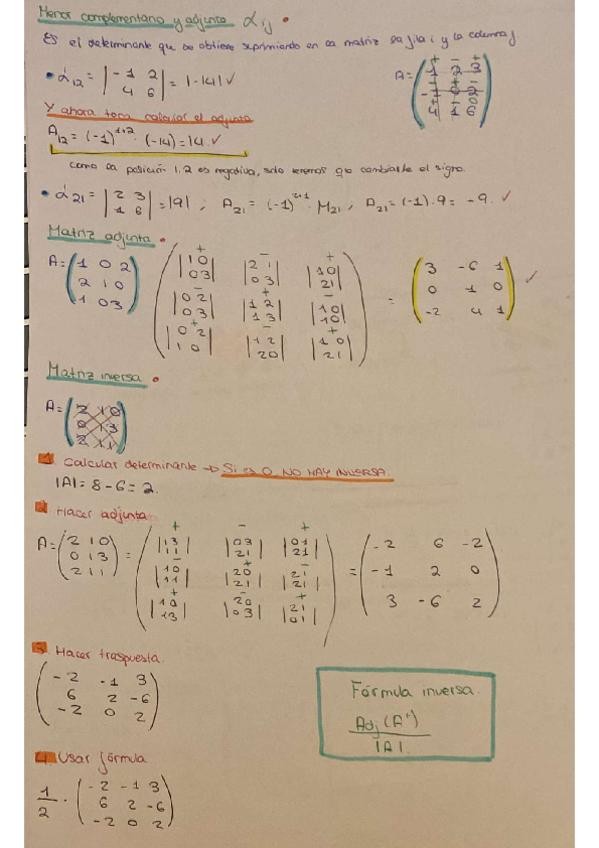 Menor complementario y adjunto αij
Es el determinante que se obtiene suprimiendo en la matriz la fila i y la columna j
• α12 = |-1 2| = |-14| ✓ A = (1 2 3)
|4 6| (-1 0 -2)
(4 1 6)
Y ahora toca calcular el adjunto
A12 = (-1)^1+2 · (-14) = 14. ✓
Como la posición 1,2 es negativa, solo tenemos que cambiarle el signo.
• α21 = |2 3| = |9| ; A21 = (-1)^2+1 · M21 ; A21 = (-1) · 9 = -9. ✓
|1 6|
Matriz adjunta
+ - +
A = (1 0 2) |1 0| |2 1| |1 0| = (3 -6 1) ✓
(2 1 0) |0 3| |0 3| |2 1| (0 1 0)
(1 0 3) - + - (-2 4 1)
|0 2| |1 2| |1 0|
|0 3| |1 3| |1 0|
+ - +
|0 2| |1 2| |1 0|
|1 0| |2 0| |2 1|
Matriz inversa
A = (2 1 0)
(0 1 3)
(2 1 1)
1. Calcular determinante → Si es 0 NO HAY INVERSA.
|A| = 8 - 6 = 2.
2. Hacer adjunta
+ - +
A = (2 1 0) = |1 3| |0 3| |0 1| = (-2 6 -2)
(0 1 3) |1 1| |2 1| |2 1| (-1 2 0)
(2 1 1) - + - (3 -6 2)
|1 0| |2 0| |2 1|
|1 1| |2 1| |2 1|
+ - +
|1 0| |2 0| |2 1|
|1 3| |0 3| |0 1|
3. Hacer traspuesta.
(-2 -1 3)
(6 2 -6)
(-2 0 2)
Fórmula inversa.
Adj (A^t)
|A|.
4. Usar fórmula
1/2 · (-2 -1 3)
(6 2 -6)
(-2 0 2)